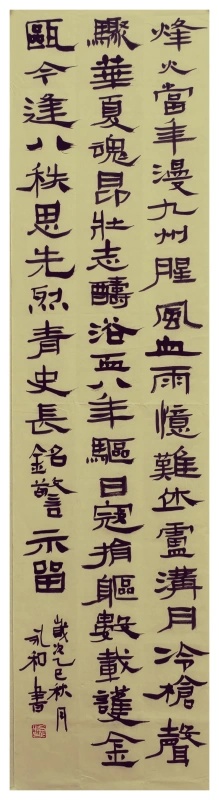 烽火當年漫九州腥風血雨憶難休盧溝月冷槍聲
驟華夏魂昂壯志醻浴血八年驅日寇捐軀數載護金
甌今逢八秩思先烈青史長銘警示留
歲次乙巳秋月
和書